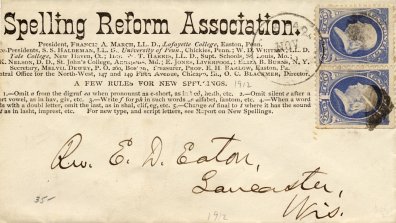 Spelling Reform Association.
President, FRANCIS A. MARCH, LL. D., Lafayette College, Easton, Penn.
-Presidents, S. S. HALDEMAN, LL. D. University of Penn., Chickies, Penn.; W. D. WHITNEY, LL. D.
Yale College, New Haven, Ct.; T. HARRIS, LL. D., Supt. Schools, St. Louis, Mo.;
K. NELSON, D. D., St. John's College, Md.; E. JONES, LIVERPOOL; ELIZA B. BURNS, N. Y.
Secretary, MELVIL DEWEY, P. O. 260, BOSTON, Treasurer, PROF. E. H. BARLOW, EASTON, PA.
Central Office for the North-West, 147 and 149 Fifth Avenue, Chicago, O. C. BLACKMER, Director.
A FEW RULES FOR NEW SPELINGS. 1912
1.—Omit a from the digraf ea when pronounst as e-short, as in hed, helth, etc. 2.—Omit silent e after a
short vowel, as in hav, giv, etc. 3.—Write f for ph in such words as alfabet, fantom, etc. 4.—When a word
ends with a double letter, omit the last, as in shal, clif, eg, etc. 5.—Change ed final to t where it has the sound
of t as in lasht, imprest, etc. For new type, and script letters, see Report on New Spellings.
Rev. E. D. Eaton,
Lancaster,
Wis.
35-
1912